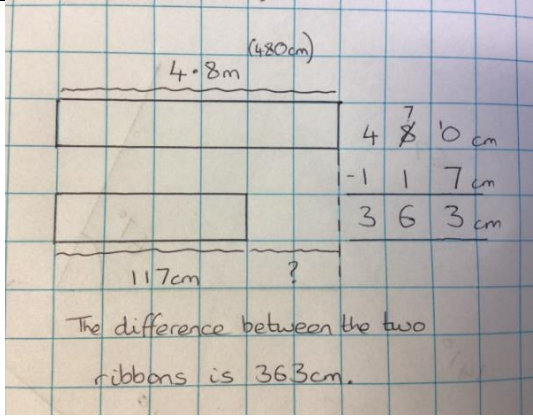 (480cm)
4.8m
7
4 8 10 cm
-1 1 7 cm
3 6 3 cm
117cm ?
The difference between the two
ribbons is 363cm.